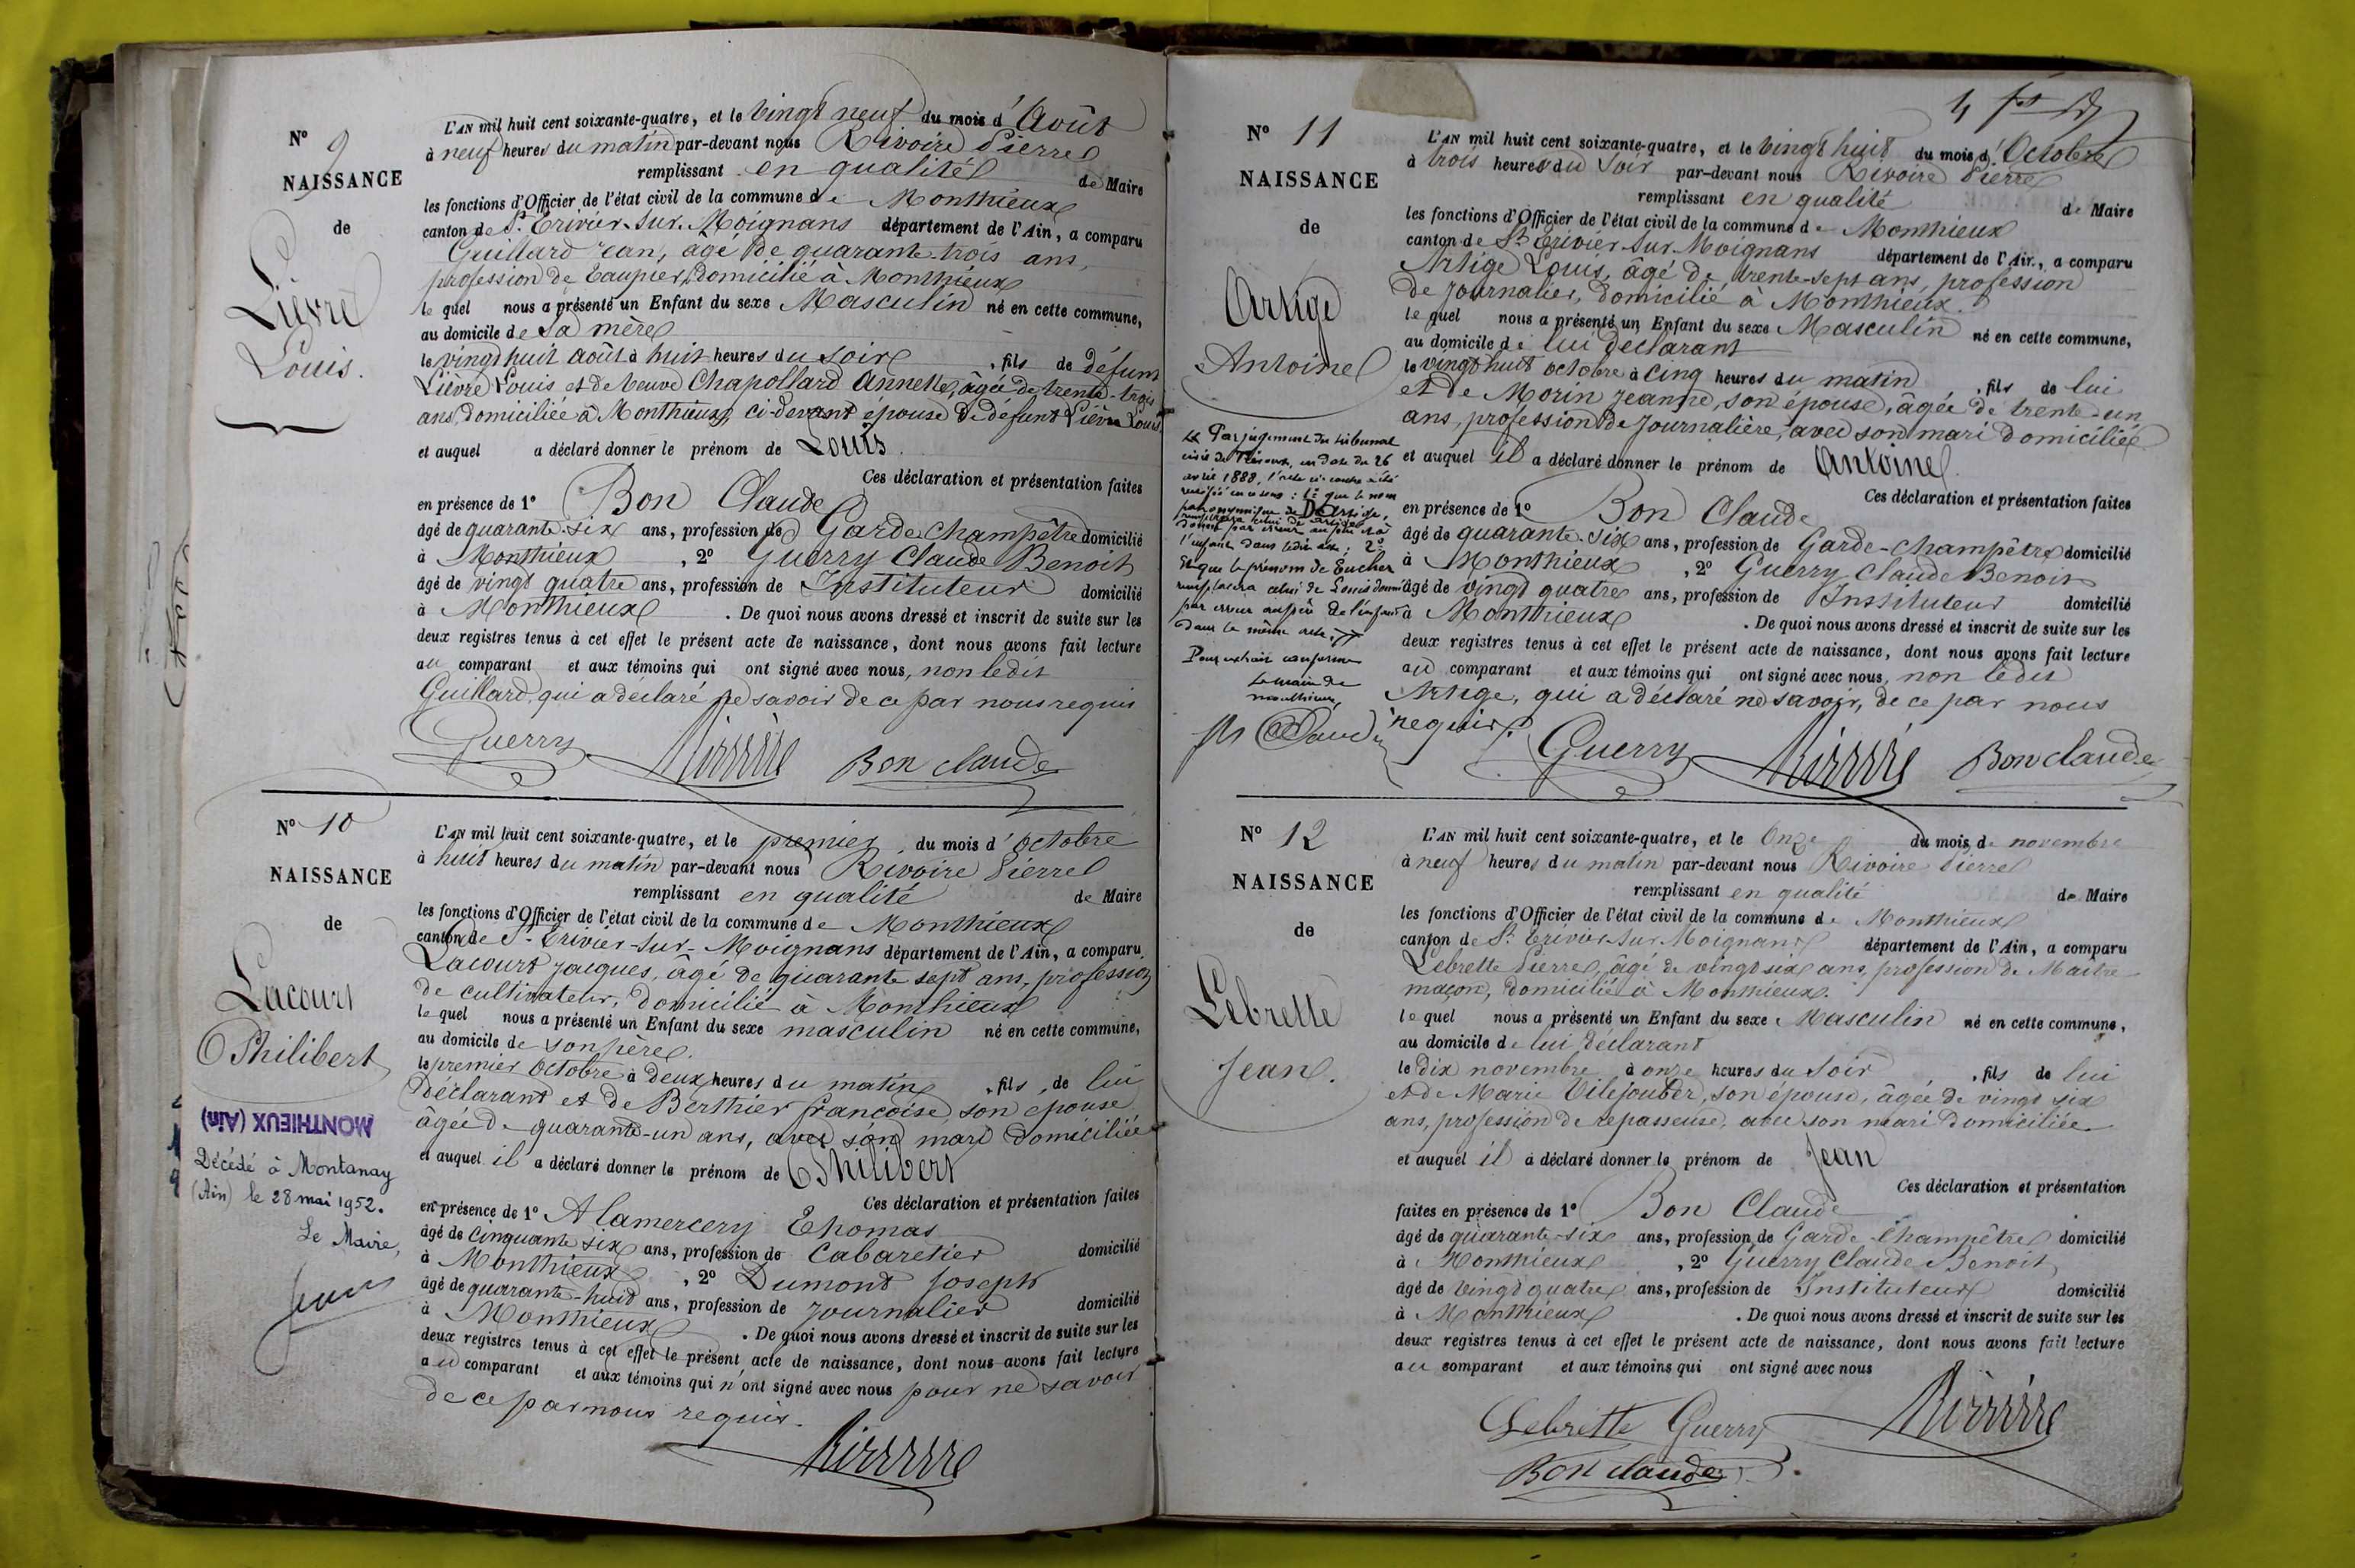 N° 9
NAISSANCE
de
Lièvre
Louis.
L'AN mil huit cent soixante-quatre, et le vingt neuf du mois d'Août
à neuf heures du matin par-devant nous Rivoire Pierre
remplissant en qualité de Maire
les fonctions d'Officier de l'état civil de la commune de Monthieux
canton de St Trivier-sur-Moignans département de l'Ain, a comparu
Guillard Jean, âgé de quarante-trois ans,
profession de Taupier, domicilié à Monthieux
lequel nous a présenté un Enfant du sexe Masculin né en cette commune,
au domicile de sa mère
le vingt huit août à huit heures du soir, fils de défunt
Lièvre Louis et de veuve Chapollard Annette, âgée de trente-trois
ans, domiciliée à Monthieux, ci-devant épouse de défunt Lièvre Louis
et auquel a déclaré donner le prénom de Louis.
Ces déclaration et présentation faites
en présence de 1° Bon Claude
âgé de quarante-six ans, profession de Garde champêtre domicilié
à Monthieux, 2° Guerry Claude Benoit
âgé de vingt quatre ans, profession de Instituteur domicilié
à Monthieux. De quoi nous avons dressé et inscrit de suite sur les
deux registres tenus à cet effet le présent acte de naissance, dont nous avons fait lecture
au comparant et aux témoins qui ont signé avec nous, non ledit
Guillard, qui a déclaré ne savoir de ce par nous requis
Guerry Rivoire Bon claude
N° 10
NAISSANCE
de
Lacourt
Philibert
MONTHIEUX (Ain)
Décédé à Montanay
(Ain) le 28 mai 1952.
Le Maire,
L'AN mil huit cent soixante-quatre, et le premier du mois d'octobre
à huit heures du matin par-devant nous Rivoire Pierre
remplissant en qualité de Maire
les fonctions d'Officier de l'état civil de la commune de Monthieux
canton de St Trivier-sur-Moignans département de l'Ain, a comparu
Lacourt Jacques, âgé de quarante sept ans, profession
de cultivateur, domicilié à Monthieux
lequel nous a présenté un Enfant du sexe masculin né en cette commune,
au domicile de son père.
le premier octobre à deux heures du matin, fils de lui
déclarant et de Berthier françoise son épouse
âgée de quarante-un ans, avec son mari domiciliée
et auquel il a déclaré donner le prénom de Philibert
Ces déclaration et présentation faites
en présence de 1° Alamercery Thomas
âgé de cinquante six ans, profession de Cabaretier domicilié
à Monthieux, 2° Dumont Joseph
âgé de quarante-huit ans, profession de Journalier domicilié
à Monthieux. De quoi nous avons dressé et inscrit de suite sur les
deux registres tenus à cet effet le présent acte de naissance, dont nous avons fait lecture
au comparant et aux témoins qui n'ont signé avec nous pour ne savoir
de ce par nous requis.
Rivoire
N° 11
NAISSANCE
de
Artige
Antoine
Par jugement du tribunal
civil de Trévoux, en date du 26
avril 1888, l'acte ci-contre a été
rectifié en ce sens : 1° que le nom
patronymique de Dartige,
remplacera celui de Artige
donné par erreur au père et à
l'enfant dans ledit acte ; 2°
Et que le prénom de Eucher
remplacera celui de Louis donné
par erreur au père de l'enfant
dans le même acte.
Pour extrait conforme
Le maire de
Monthieux
L'AN mil huit cent soixante-quatre, et le vingt huit du mois d'Octobre
à trois heures du soir par-devant nous Rivoire Pierre
remplissant en qualité de Maire
les fonctions d'Officier de l'état civil de la commune de Monthieux
canton de St Trivier-sur-Moignans département de l'Ain, a comparu
Artige Louis, âgé de trente-sept ans, profession
de journalier, domicilié à Monthieux.
lequel nous a présenté un Enfant du sexe Masculin né en cette commune,
au domicile de lui déclarant
le vingt huit octobre à cinq heures du matin, fils de lui
et de Morin Jeanne, son épouse, âgée de trente-un
ans, profession de Journalière, avec son mari domiciliée
et auquel il a déclaré donner le prénom de Antoine.
Ces déclaration et présentation faites
en présence de 1° Bon Claude
âgé de quarante-six ans, profession de Garde-champêtre domicilié
à Monthieux, 2° Guerry Claude Benoit
âgé de vingt quatre ans, profession de Instituteur domicilié
à Monthieux. De quoi nous avons dressé et inscrit de suite sur les
deux registres tenus à cet effet le présent acte de naissance, dont nous avons fait lecture
au comparant et aux témoins qui ont signé avec nous, non ledit
Artige, qui a déclaré ne savoir, de ce par nous
requis.
Guerry Rivoire Bon claude
N° 12
NAISSANCE
de
Lebrette
Jean.
L'AN mil huit cent soixante-quatre, et le Onze du mois de novembre
à neuf heures du matin par-devant nous Rivoire Pierre
remplissant en qualité de Maire
les fonctions d'Officier de l'état civil de la commune de Monthieux
canton de St Trivier-sur-Moignans département de l'Ain, a comparu
Lebrette Pierre, âgé de vingt six ans, profession de Maître
maçon, domicilié à Monthieux.
lequel nous a présenté un Enfant du sexe Masculin né en cette commune,
au domicile de lui déclarant
le Dix novembre à onze heures du Soir, fils de lui
et de Marie Vilejouber, son épouse, âgée de vingt six
ans, profession de repasseuse, avec son mari domiciliée.
et auquel il a déclaré donner le prénom de Jean
Ces déclaration et présentation
faites en présence de 1° Bon Claude
âgé de quarante-six ans, profession de Garde-Champêtre domicilié
à Monthieux, 2° Guerry Claude Benoit
âgé de vingt quatre ans, profession de Instituteur domicilié
à Monthieux. De quoi nous avons dressé et inscrit de suite sur les
deux registres tenus à cet effet le présent acte de naissance, dont nous avons fait lecture
au comparant et aux témoins qui ont signé avec nous
Lebrette Guerry Rivoire
Bon claude